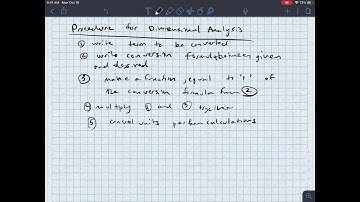 9:41 AM Mon Oct 19
72%
Procedure for Dimensional Analysis
① write term to be converted
② write conversion formula between given
and desired
③ make a fraction, equal to "1" of
the conversion formula from ②
④ multiply ① and ③ together
⑤ cancel units perform calculations